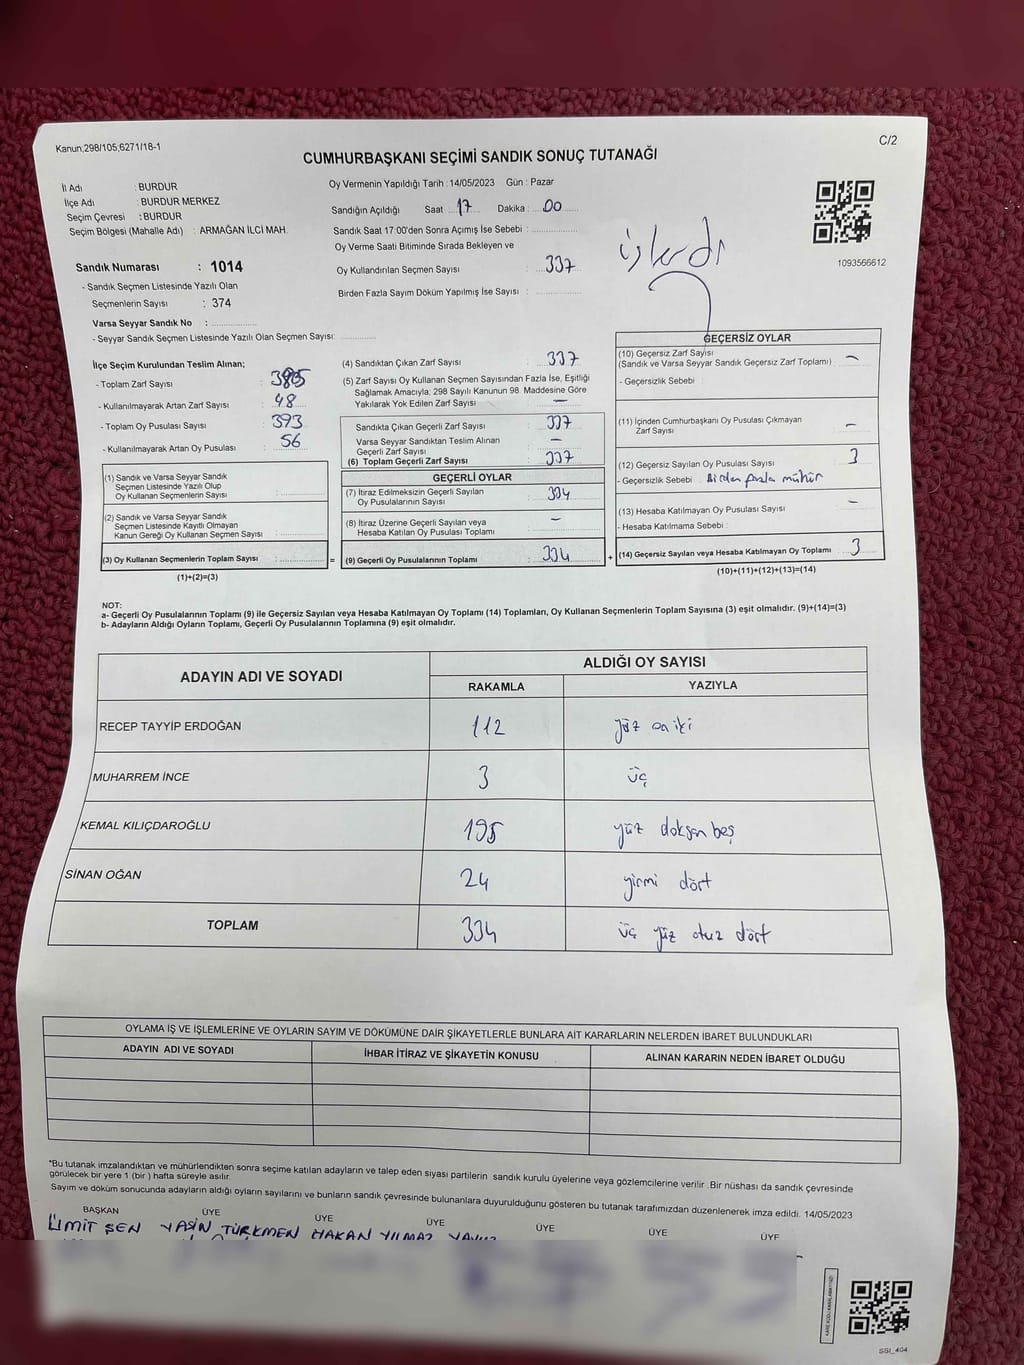 Kanun,298/105,6271/18-1
C/2
CUMHURBAŞKANI SEÇİMİ SANDIK SONUÇ TUTANAĞI
İl Adı : BURDUR
İlçe Adı : BURDUR MERKEZ
Seçim Çevresi : BURDUR
Seçim Bölgesi (Mahalle Adı) : ARMAĞAN İLCİ MAH.
Sandık Numarası : 1014
- Sandık Seçmen Listesinde Yazılı Olan
Seçmenlerin Sayısı : 374
Varsa Seyyar Sandık No :
- Seyyar Sandık Seçmen Listesinde Yazılı Olan Seçmen Sayısı:
Oy Vermenin Yapıldığı Tarih : 14/05/2023 Gün : Pazar
Sandığın Açıldığı Saat 17 Dakika : 00
Sandık Saat 17:00'den Sonra Açımış İse Sebebi :
Oy Verme Saati Bitiminde Sırada Bekleyen ve
Oy Kullandırılan Seçmen Sayısı : 337
Birden Fazla Sayım Döküm Yapılmış İse Sayısı :
işlendi
1093566612
İlçe Seçim Kurulundan Teslim Alınan;
- Toplam Zarf Sayısı :
- Kullanılmayarak Artan Zarf Sayısı : 48
- Toplam Oy Pusulası Sayısı : 393
- Kullanılmayarak Artan Oy Pusulası : 56
(1) Sandık ve Varsa Seyyar Sandık
Seçmen Listesinde Yazılı Olup
Oy Kullanan Seçmenlerin Sayısı :
(2) Sandık ve Varsa Seyyar Sandık
Seçmen Listesinde Kayıtlı Olmayan
Kanun Gereği Oy Kullanan Seçmen Sayısı :
(3) Oy Kullanan Seçmenlerin Toplam Sayısı : =
(1)+(2)=(3)
(4) Sandıktan Çıkan Zarf Sayısı : 337
(5) Zarf Sayısı Oy Kullanan Seçmen Sayısından Fazla İse, Eşitliği
Sağlamak Amacıyla; 298 Sayılı Kanunun 98. Maddesine Göre
Yakılarak Yok Edilen Zarf Sayısı : —
Sandıkta Çıkan Geçerli Zarf Sayısı : 337
Varsa Seyyar Sandıktan Teslim Alınan
Geçerli Zarf Sayısı : —
(6) Toplam Geçerli Zarf Sayısı : 337
GEÇERLİ OYLAR
(7) İtiraz Edilmeksizin Geçerli Sayılan
Oy Pusulalarının Sayısı : 334
(8) İtiraz Üzerine Geçerli Sayılan veya
Hesaba Katılan Oy Pusulası Toplamı : —
(9) Geçerli Oy Pusulalarının Toplamı : 334 +
GEÇERSİZ OYLAR
(10) Geçersiz Zarf Sayısı
(Sandık ve Varsa Seyyar Sandık Geçersiz Zarf Toplamı) : —
- Geçersizlik Sebebi :
(11) İçinden Cumhurbaşkanı Oy Pusulası Çıkmayan
Zarf Sayısı : —
(12) Geçersiz Sayılan Oy Pusulası Sayısı : 3
- Geçersizlik Sebebi : Birden fazla mühür
(13) Hesaba Katılmayan Oy Pusulası Sayısı : —
- Hesaba Katılmama Sebebi :
(14) Geçersiz Sayılan veya Hesaba Katılmayan Oy Toplamı : 3
(10)+(11)+(12)+(13)=(14)
NOT:
a- Geçerli Oy Pusulalarının Toplamı (9) ile Geçersiz Sayılan veya Hesaba Katılmayan Oy Toplamı (14) Toplamları, Oy Kullanan Seçmenlerin Toplam Sayısına (3) eşit olmalıdır. (9)+(14)=(3)
b- Adayların Aldığı Oyların Toplamı, Geçerli Oy Pusulalarının Toplamına (9) eşit olmalıdır.
ADAYIN ADI VE SOYADI
ALDIĞI OY SAYISI
RAKAMLA YAZIYLA
RECEP TAYYİP ERDOĞAN 112 yüz on iki
MUHARREM İNCE 3 üç
KEMAL KILIÇDAROĞLU 195 yüz doksan beş
SİNAN OĞAN 24 yirmi dört
TOPLAM 334 üç yüz otuz dört
OYLAMA İŞ VE İŞLEMLERİNE VE OYLARIN SAYIM VE DÖKÜMÜNE DAİR ŞİKAYETLERLE BUNLARA AİT KARARLARIN NELERDEN İBARET BULUNDUKLARI
ADAYIN ADI VE SOYADI İHBAR İTİRAZ VE ŞİKAYETİN KONUSU ALINAN KARARIN NEDEN İBARET OLDUĞU
*Bu tutanak imzalandıktan ve mühürlendikten sonra seçime katılan adayların ve talep eden siyasi partilerin sandık kurulu üyelerine veya gözlemcilerine verilir .Bir nüshası da sandık çevresinde
görülecek bir yere 1 (bir ) hafta süreyle asılır.
Sayım ve döküm sonucunda adayların aldığı oyların sayılarını ve bunların sandık çevresinde bulunanlara duyurulduğunu gösteren bu tutanak tarafımızdan düzenlenerek imza edildi. 14/05/2023
BAŞKAN ÜYE ÜYE ÜYE ÜYE ÜYE ÜYE
ÜMİT ŞEN YASİN TÜRKMEN HAKAN YILMAZ YAVUZ
SSI_404